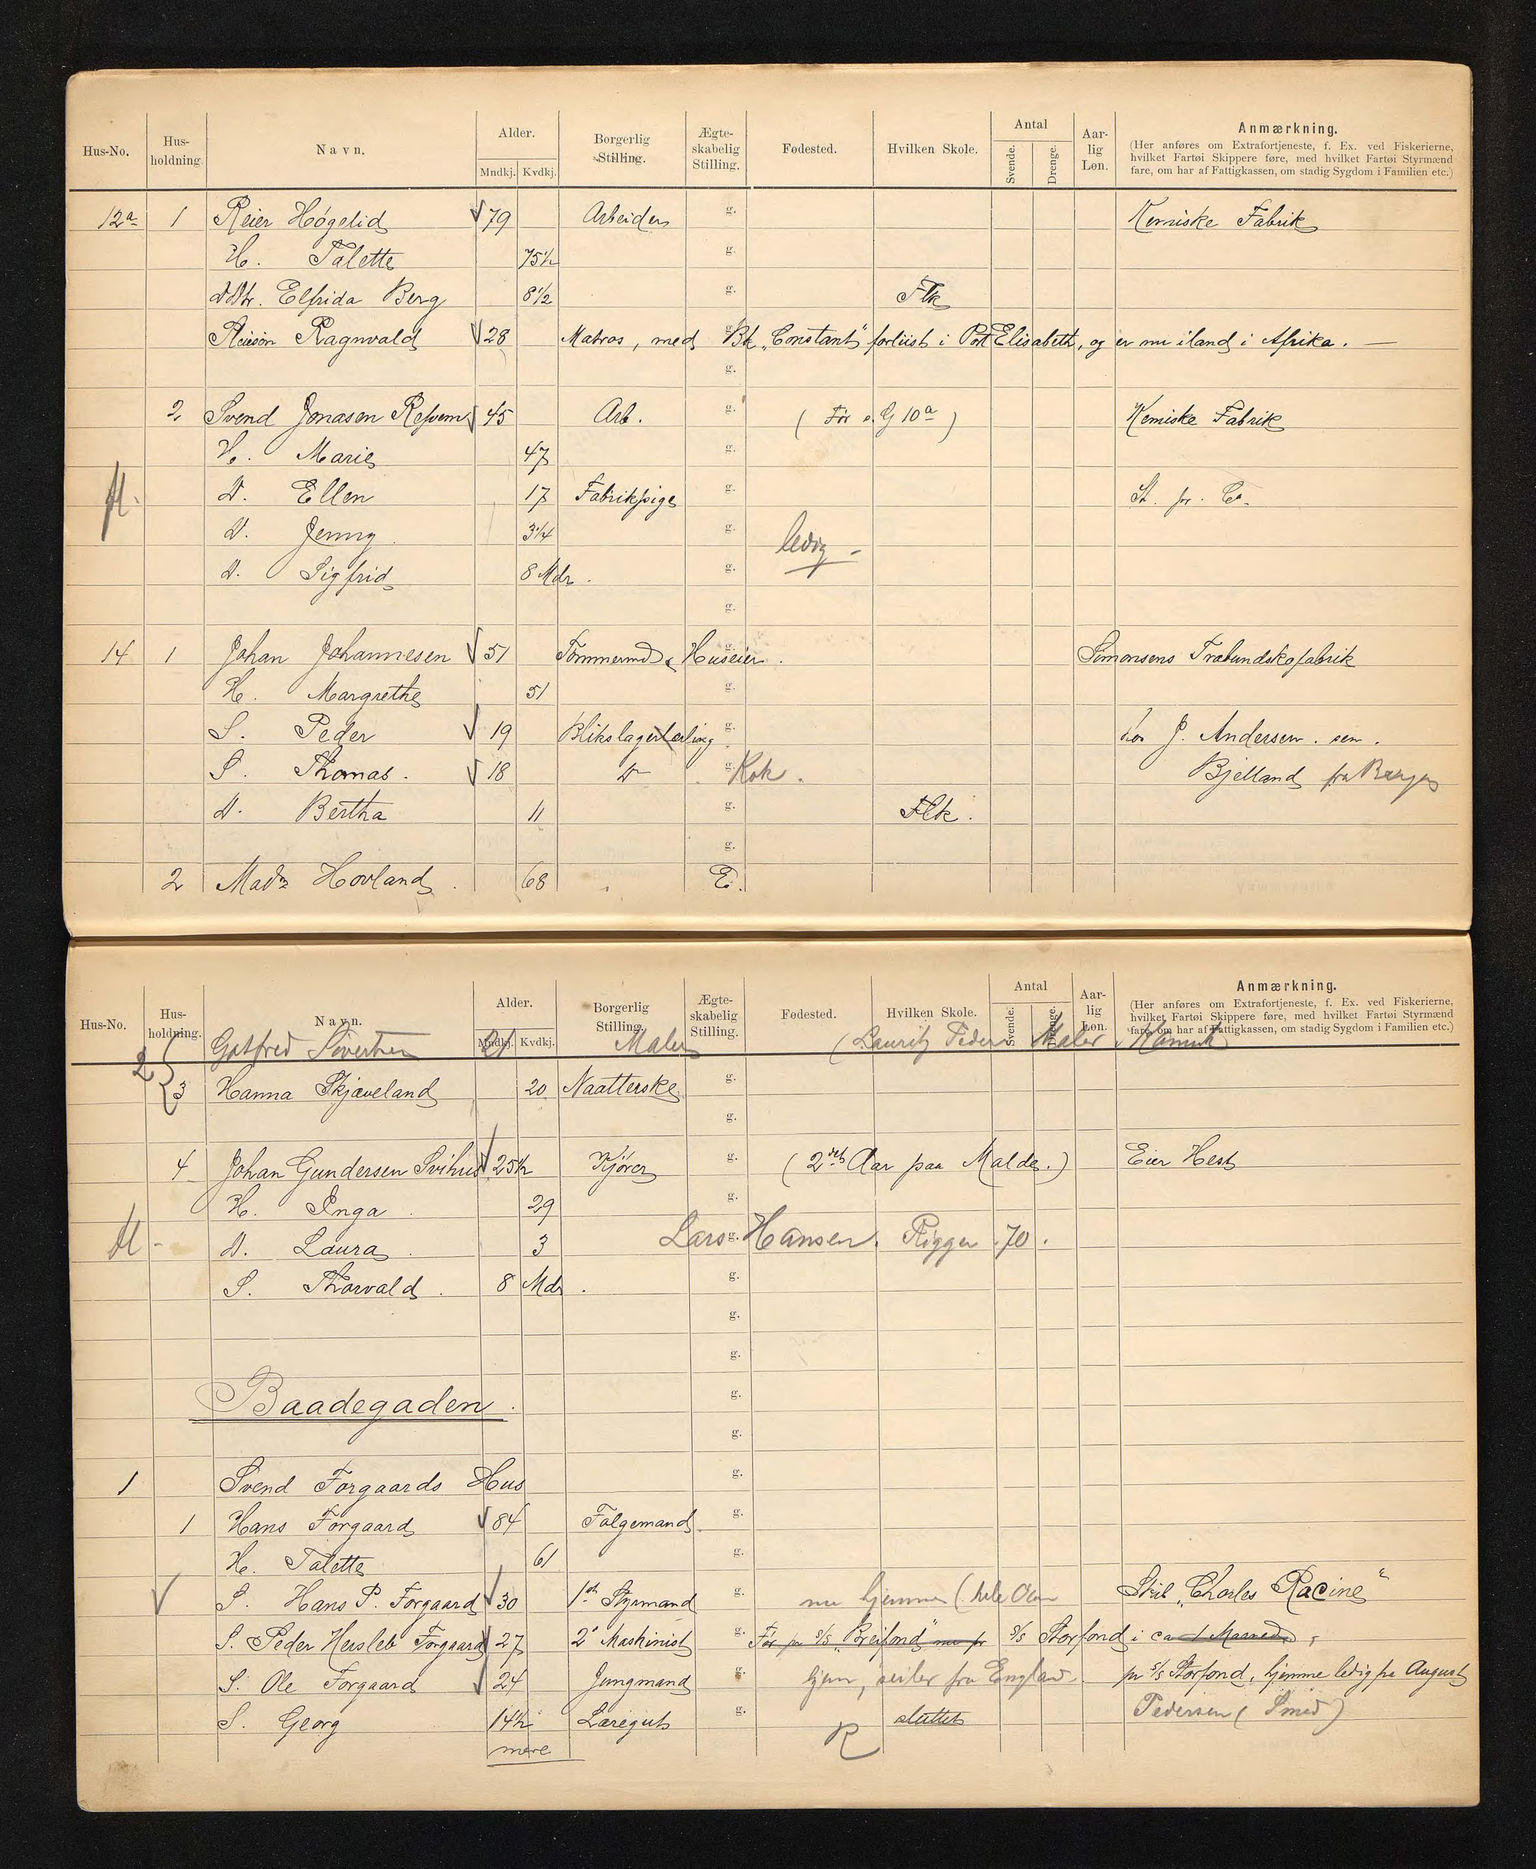 Hus-No. Hus-holdning. Navn. Alder. Mndkj. Kvdkj. Borgerlig Stilling. Ægte-skabelig Stilling. Fødested. Hvilken Skole. Antal Svende. Drenge. Aar-lig Løn. Anmærkning.
(Her anføres om Extrafortjeneste, f. Ex. ved Fiskerierne, hvilket Fartøi Skippere føre, med hvilket Fartøi Styrmænd fare, om har af Fattigkassen, om stadig Sygdom i Familien etc.)
12a 1 Reier Høgelid 79 Arbeider g. Kemiske Fabrik
H. Talette 75½ g.
Elfrida Berg 8½ g. Flk
Ragnvald 28 Matros, med Bk „Constant" forliist i Port Elisabeth, og er nu iland i Afrika. —
g.
2 Svend Jonasen 45 Arb. g. (Før 10a) Kemiske Fabrik
H. Marie 47 g.
Fl. D. Ellen 17 Fabrikpige g. St. pr. Co.
D. Jenny 3¼ g. ledig —
D. Sigfrid 8 Mdr. g.
g.
14 1 Johan Johannesen 51 Tømmermd & Huseier. Simonsens Træbundskofabrik
H. Margrethe 51 g.
S. Peder 19 Blikslagerlærling g. hos J. Andersen. sen.
S. Thomas. 18 D g. Kok. Bjelland fra Bergen
D. Bertha 11 g. Flk.
g.
2 Madm Hovland 68 E.
Hus-No. Hus-holdning. Navn. Alder. Mndkj. Kvdkj. Borgerlig Stilling. Ægte-skabelig Stilling. Fødested. Hvilken Skole. Antal Svende. Drenge. Aar-lig Løn. Anmærkning.
(Her anføres om Extrafortjeneste, f. Ex. ved Fiskerierne, hvilket Fartøi Skippere føre, med hvilket Fartøi Styrmænd fare, om har af Fattigkassen, om stadig Sygdom i Familien etc.)
2 Gotfred Sivertsen Maler (Lauritz Maler
3 Hanna Skjæveland 20 Naatterske g.
g.
4 Johan Gundersen 25½ Kjører g. (2det Aar paa Malde.) Eier Hest
H. Inga 29 g.
Fl. D. Laura 3 Lars g. Hansen. Rigger 70.
S. Thorvald 8 Mdr. g.
g.
g.
Baadegaden. g.
g.
1 Svend Forgaards Hus g.
1 Hans Forgaard 84 Følgemand g.
H. Talette 61 g.
S. Hans P. Forgaard 30 1ste Styrmand g. nu hjemme (hele Skib „Charles Racine"
S. Peder Hersleb Forgaard 27 2' Maskinist g. Før pr S/S „Breifond" nu pr S/S Storfond i ca 1 Maaned,
S. Ole Forgaard 24 Jungmand g. hjem, seiler fra England pr S/S Storfond, hjemme ledig fra August
S. Georg 14½ Læregut g. sluttet Pedersen (Smed)
mere R